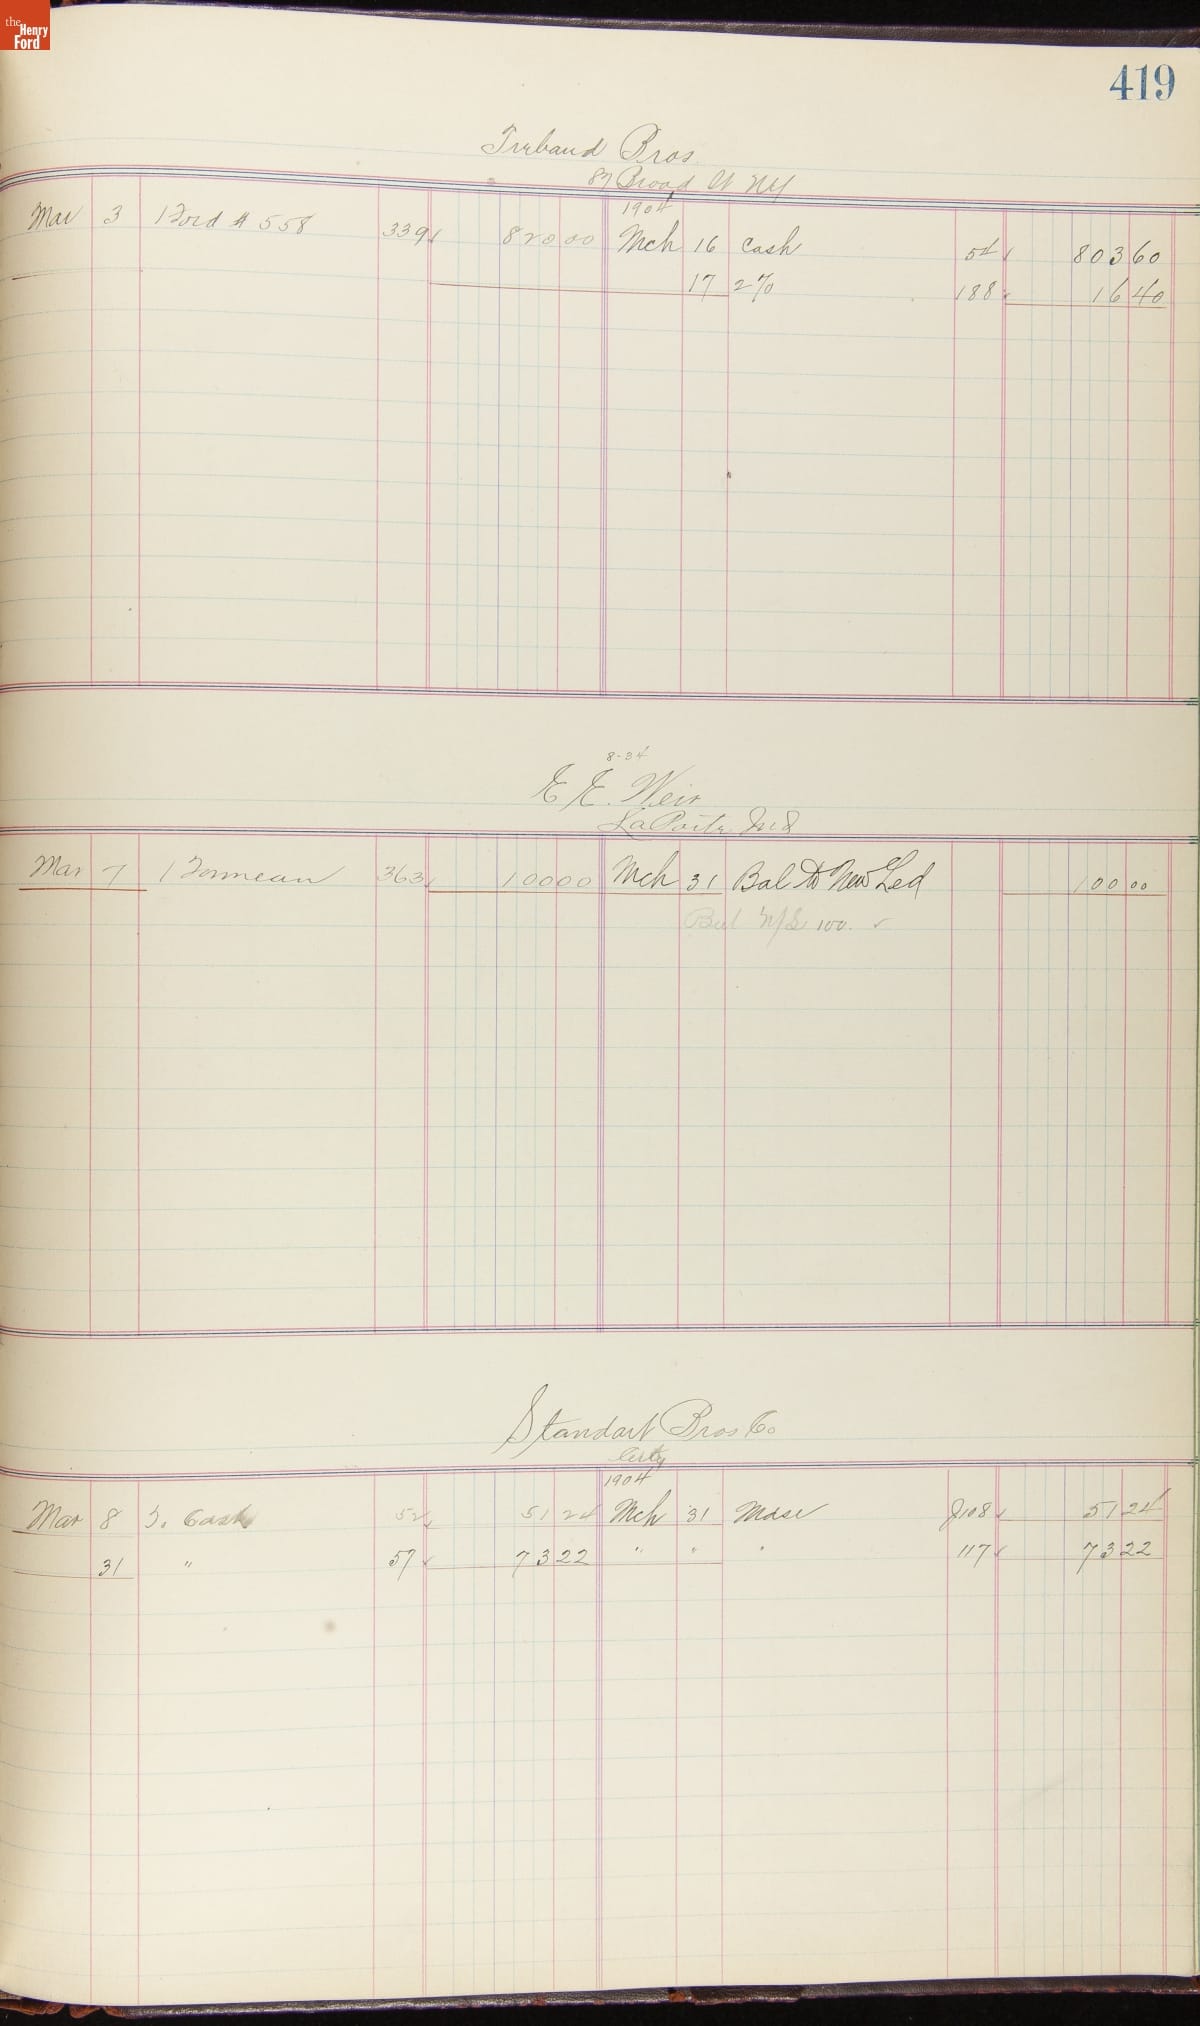 the Henry Ford
419
Bros
87 Broad St NY
1904
Mar 3 1 Ford # 558 339 820 00 Mch 16 Cash 54 803 60
17 2% 188 16 40
8-34
E E. Weir
LaPorte Ind
Mar 7 1 Tonneau 363 100 00 Mch 31 Bal to New Led 100 00
Bal N/L 100.
Standart Bros Co
City
1904
Mar 8 To Cash 52 51 24 Mch 31 Mdse J108 51 24
31 " 57 73 22 " " " 117 73 22